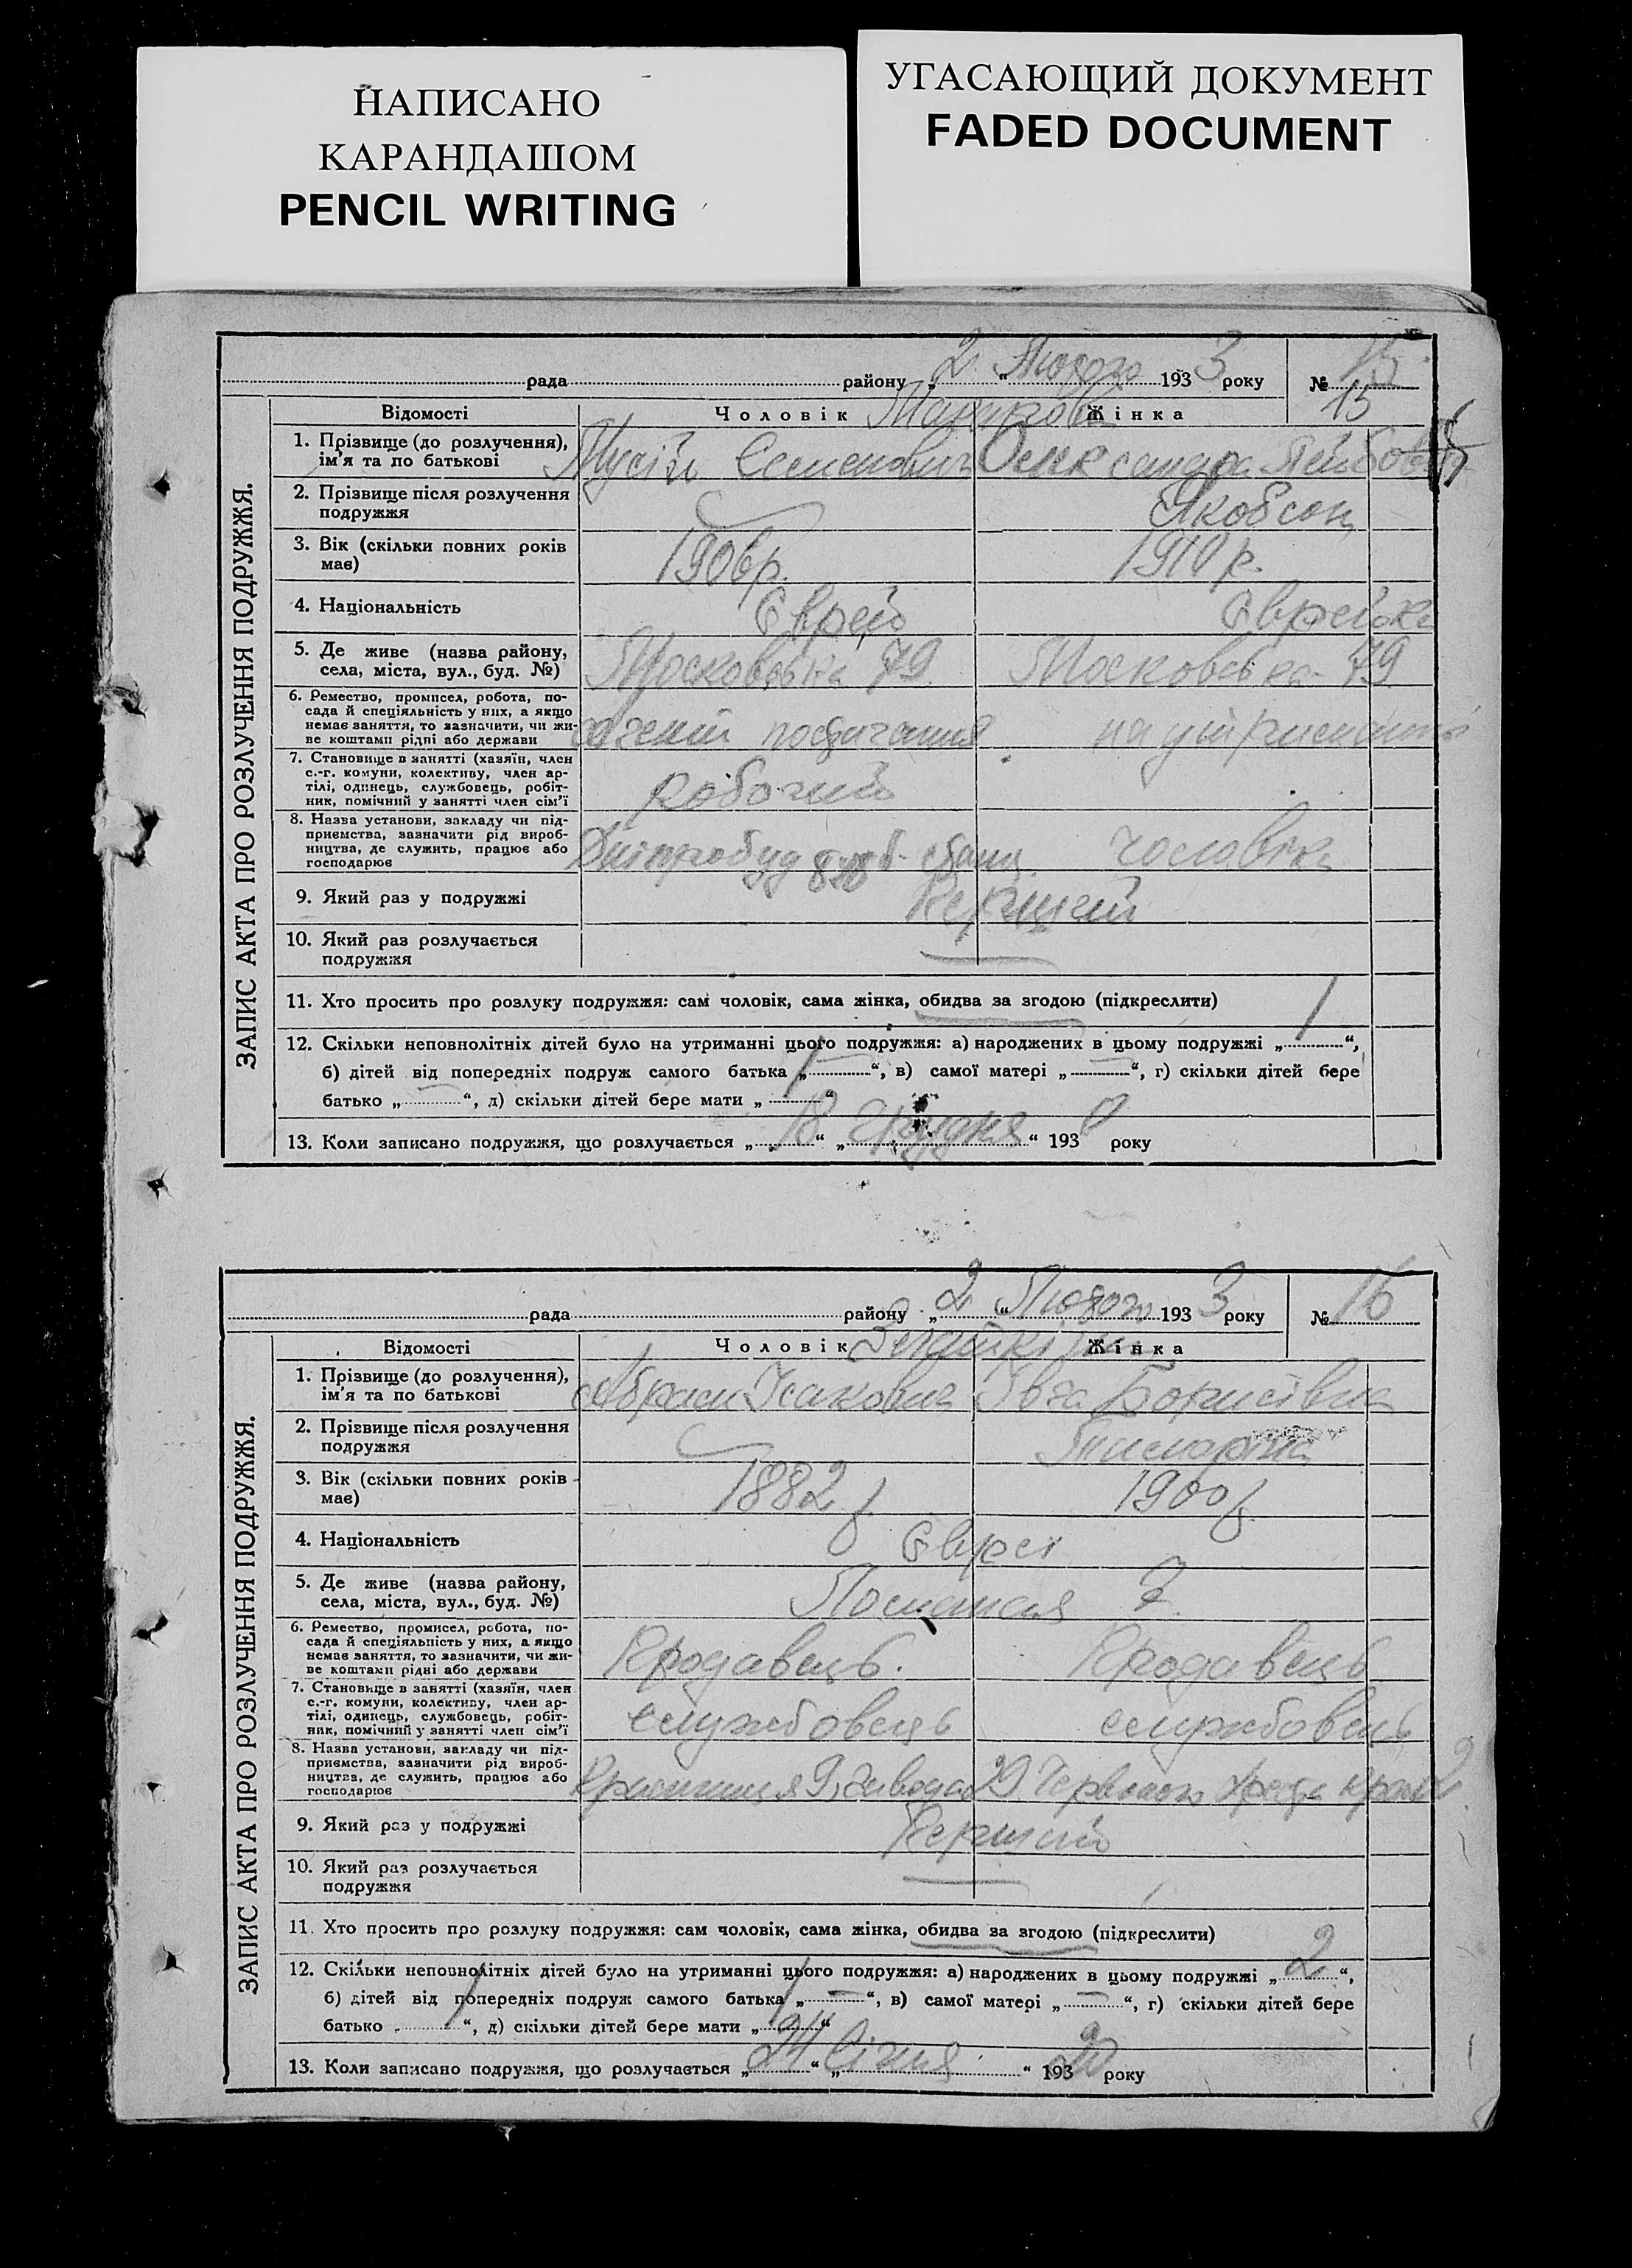 НАПИСАНО
КАРАНДАШОМ
PENCIL WRITING
УГАСАЮЩИЙ ДОКУМЕНТ
FADED DOCUMENT
ЗАПИС АКТА ПРО РОЗЛУЧЕННЯ ПОДРУЖЖЯ.
рада району „2“ Лютого 1933 року № 15
15
Відомості Чоловік Жінка
1. Прізвище (до розлучення),
ім'я та по батькові
Мусій Семенович Олександра Лейбовна
2. Прізвище після розлучення
подружжя
Якобсон
3. Вік (скільки повних років
має)
1906р. 1910 р.
4. Національність
Єврей Єврейка
5. Де живе (назва району,
села, міста, вул., буд. №)
Московська 79 Московська 79
6. Ремество, промисел, робота, по-
сада й спеціяльність у них, а якщо
немає заняття, то зазначити, чи жи-
ве коштами рідні або держави
постачання на утриманні
7. Становище в занятті (хазяїн, член
с.-г. комуни, колективу, член ар-
тілі, одинець, службовець, робіт-
ник, помічний у занятті член сім'ї
робочий
8. Назва установи, закладу чи під-
приємства, зазначити рід вироб-
ництва, де служить, працює або
господарює
Дніпробуд чоловіка
9. Який раз у подружжі
Перший
10. Який раз розлучається
подружжя
11. Хто просить про розлуку подружжя: сам чоловік, сама жінка, обидва за згодою (підкреслити)
12. Скільки неповнолітніх дітей було на утриманні цього подружжя: а) народжених в цьому подружжі „1“,
б) дітей від попередніх подруж самого батька „—“, в) самої матері „—“, г) скільки дітей бере
батько „—“, д) скільки дітей бере мати „1“
13. Коли записано подружжя, що розлучається „18“ „Грудня“ 1930 року
ЗАПИС АКТА ПРО РОЗЛУЧЕННЯ ПОДРУЖЖЯ.
рада району „2“ Лютого 1933 року № 16
Відомості Чоловік Жінка
1. Прізвище (до розлучення),
ім'я та по батькові
Абрам Ісакович Борисівна
2. Прізвище після розлучення
подружжя
3. Вік (скільки повних років
має)
1882 р. 1900 р.
4. Національність
Євреї
5. Де живе (назва району,
села, міста, вул., буд. №)
7.
6. Ремество, промисел, робота, по-
сада й спеціяльність у них, а якщо
немає заняття, то зазначити, чи жи-
ве коштами рідні або держави
Продавець. Продавець
7. Становище в занятті (хазяїн, член
с.-г. комуни, колективу, член ар-
тілі, одинець, службовець, робіт-
ник, помічний у занятті член сім'ї
службовець службовець
8. Назва установи, закладу чи під-
приємства, зазначити рід вироб-
ництва, де служить, працює або
господарює
Червоного Хреста
9. Який раз у подружжі
Перший
10. Який раз розлучається
подружжя
11. Хто просить про розлуку подружжя: сам чоловік, сама жінка, обидва за згодою (підкреслити)
12. Скільки неповнолітніх дітей було на утриманні цього подружжя: а) народжених в цьому подружжі „2“,
б) дітей від попередніх подруж самого батька „—“, в) самої матері „—“, г) скільки дітей бере
батько „1“, д) скільки дітей бере мати „1“
13. Коли записано подружжя, що розлучається „24“ „Січня“ 193 року